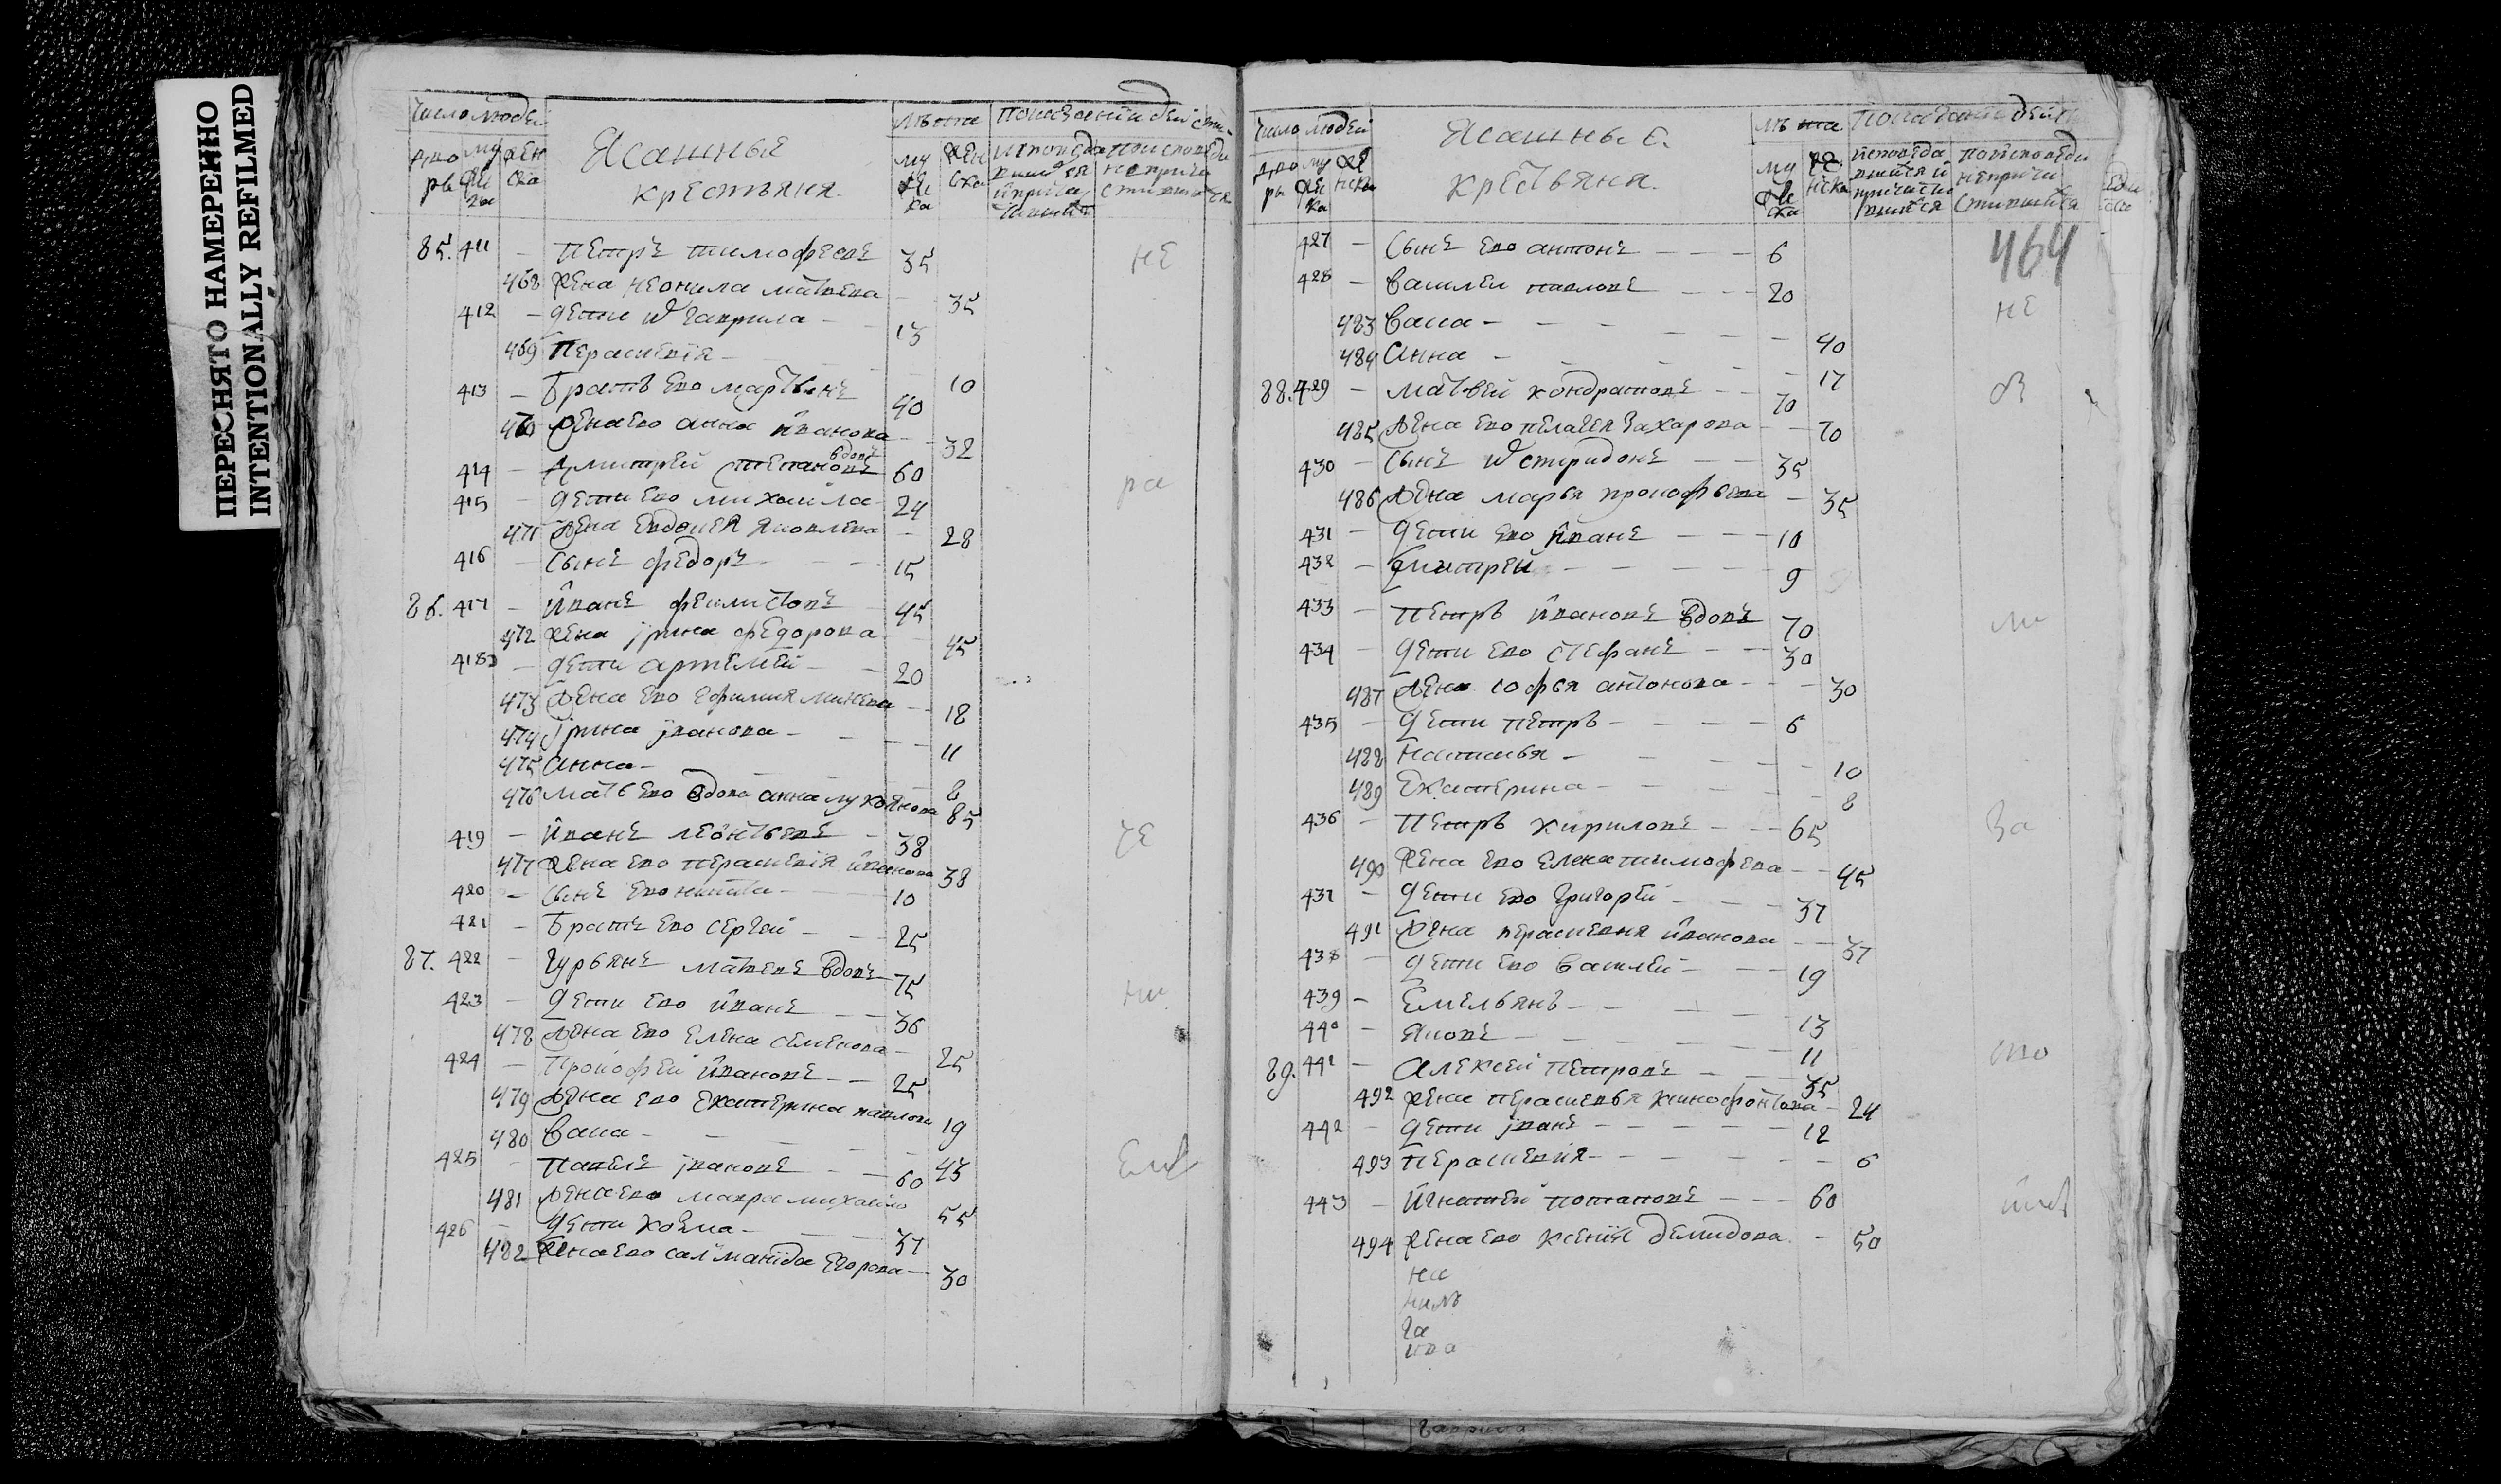 ПЕРЕСНЯТО НАМЕРЕННО
INTENTIONALLY REFILMED
Число людей
дво ры
му жес ка
жен ска
Ясашные
крестьяня
Лѣта
му жес ка
жен ска
85. 411 – петръ тимофеевъ 35 не
468 жена неонила матвева 35
412 – дети их гаврила – 13
469 Парасковiя – 10
413 – братъ ево мартынъ 40
470 жена ево анна ивановa – 32
414 – дмитрей степановъ вдовъ 60
415 – дети ево михаила – 24 ра
471 жена евдокея яковлева – 28
416 – сынъ федоръ – 15
86. 417 – иванъ феклистовъ 45
472 жена ирина федорова – 45
418 – дети артемей – 20
473 жена ево ефимия минева – 18
474 Ирина iванова – 11
475 анна – 8
476 мать ево вдова анна лукоянова 85
419 – иванъ леонтьевъ – 38 че
477 жена ево перасковiя иванова 38
420 – сынъ ево никита – 10
421 – братъ ево сергей – 25
87. 422 – гурьянъ матвевъ вдовъ 75
423 – дети ево иванъ – 36 ни
478 жена ево елена семенова – 25
424 – прокофей ивановъ – 25
479 жена ево екатерина павлова 19
480 васса – 43
425 – павелъ iвановъ – 60
481 жена ево мавра михайло 55
426 – дети козма – 37
482 жена ево саломанiда егорова – 30
Число людей
дво ры
му жес ка
же нска
Ясашные
крестьяня
Лѣта
му жес ка
же нска
464
427 – сынъ ево антонъ – 6
428 – василей павловъ – 20 не
483 васса – 40
484 анна – 17
88. 429 – матвей кондратовъ – 70
485 жена ево пелагея захарова – 70
430 – сынъ их спиридонъ – 35
486 жена марья прокофьева – 35
431 – дети ево иванъ – 10
432 – дмитрей – 9
433 – петръ ивановъ вдовъ 70 ли
434 – дети ево стефанъ – 30
487 жена софья антонова – 30
435 – дети петръ – 6
488 наталья – 10
489 екатерина – 8
436 – петръ кириловъ – 65 за
490 жена ево елена тимофева – 45
437 – дети ево григорей – 37
491 жена перасковия иванова – 37
438 – дети ево василей – 19
439 – емельянъ – 13
440 – яковъ – 11
89. 441 – алексей петровъ – 35 сво
492 жена перасковья ксинофонтова – 24
442 – дети iванъ – 12
493 перасковия – 6
443 – игнатей потаповъ – 60
494 жена ево ксения демидова – 50
на
га
гаврила